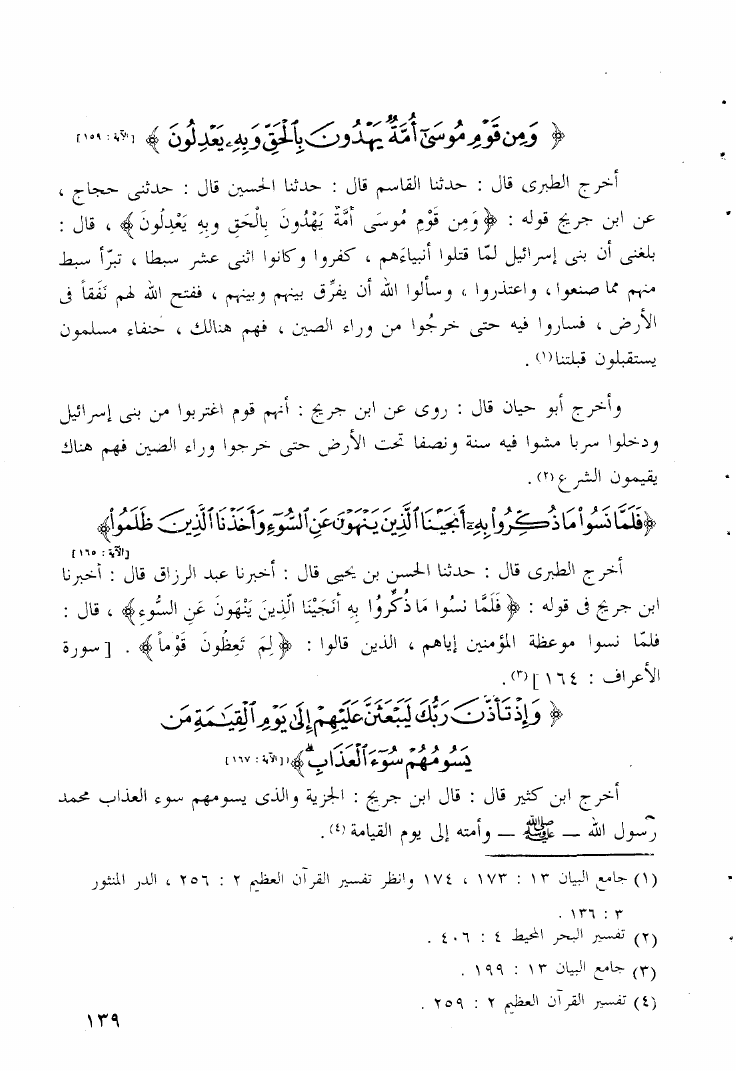 ﴿ وَمِن قَوْمِ مُوسَىٰٓ أُمَّةٌ يَهْدُونَ بِٱلْحَقِّ وَبِهِۦ يَعْدِلُونَ ﴾ [الآية: ١٥٩]
أخرج الطبرى قال : حدثنا القاسم قال : حدثنا الحسين قال : حدثنى حجاج ،
عن ابن جريج قوله : ﴿وَمِن قَوْمِ مُوسَى أُمَّةٌ يَهْدُونَ بِالْحَقِ وبِهِ يَعْدِلُونَ﴾ ، قال :
بلغنى أن بنى إسرائيل لمّا قتلوا أنبياءَهم ، كفروا وكانوا اثنى عشر سبطا ، تبرّأ سبط
منهم مما صنعوا، واعتذروا ، وسألوا الله أن يفرِّق بينهم وبينهم ، ففتح الله لهم نَفَقاً فى
الأرض ، فساروا فيه حتى خرجُوا من وراء الصين ، فهم هنالك ، حُنفاء مسلمون
يستقبلون قبلتنا(١) .
وأخرج أبو حيان قال : روى عن ابن جريج : أنهم قوم اغتربوا من بنى إسرائيل
ودخلوا سربا مشوا فيه سنة ونصفا تحت الأرض حتى خرجوا وراء الصين فهم هناك
يقيمون الشرع(٢) .
﴿فَلَمَّا نَسُوا۟ مَا ذُكِّرُوا۟ بِهِۦٓ أَنجَيْنَا ٱلَّذِينَ يَنْهَوْنَ عَنِ ٱلسُّوٓءِ وَأَخَذْنَا ٱلَّذِينَ ظَلَمُوا۟﴾
[الآية : ١٦٥]
أخرج الطبرى قال : حدثنا الحسن بن يحيى قال : أخبرنا عبد الرزاق قال : أخبرنا
ابن جريج فى قوله : ﴿ فَلَمَّا نسُوا مَا ذُكِّرُوُا بِهِ أَنجَيْنَا الَّذِينَ يَنْهَونَ عَنِ السُّوءِ﴾ ، قال :
فلمّا نسوا موعظة المؤمنين إياهم ، الذين قالوا : ﴿ لِمَ تَعِظُونَ قَوْماً ﴾ . [ سورة
الأعراف : ١٦٤ ](٣) .
﴿ وَإِذْ تَأَذَّنَ رَبُّكَ لَيَبْعَثَنَّ عَلَيْهِمْ إِلَىٰ يَوْمِ ٱلْقِيَٰمَةِ مَن
يَسُومُهُمْ سُوٓءَ ٱلْعَذَابِ ۗ ﴾ [الآية: ١٦٧]
أخرج ابن كثير قال : قال ابن جريج : الجزية والذى يسومهم سوء العذاب محمد
رسول الله ــ ﷺ ــ وأمته إلى يوم القيامة(٤) .
(١) جامع البيان ١٣ : ١٧٣ ، ١٧٤ وانظر تفسير القرآن العظيم ٢ : ٢٥٦ ، الدر المنثور
٣ : ١٣٦ .
(٢) تفسير البحر المحيط ٤ : ٤٠٦ .
(٣) جامع البيان ١٣ : ١٩٩ .
(٤) تفسير القرآن العظيم ٢ : ٢٥٩ .
١٣٩